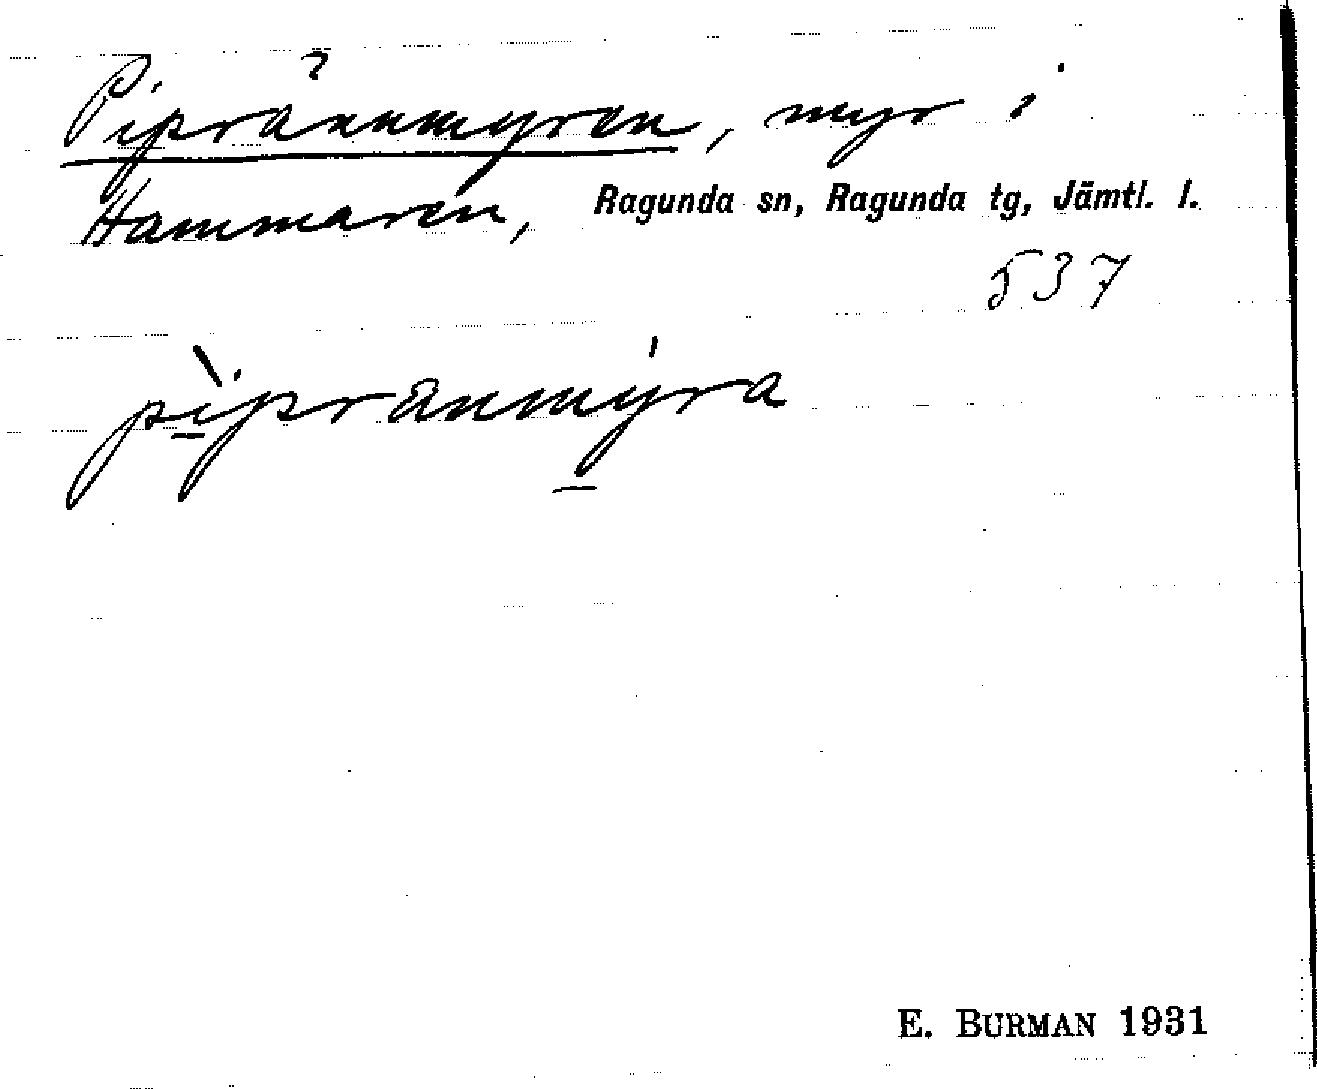 Piprännmyren, myr i
Hammaren, Ragunda sn, Ragunda tg, Jämtl. l.
537
pìpränmýra
E. BURMAN 1931